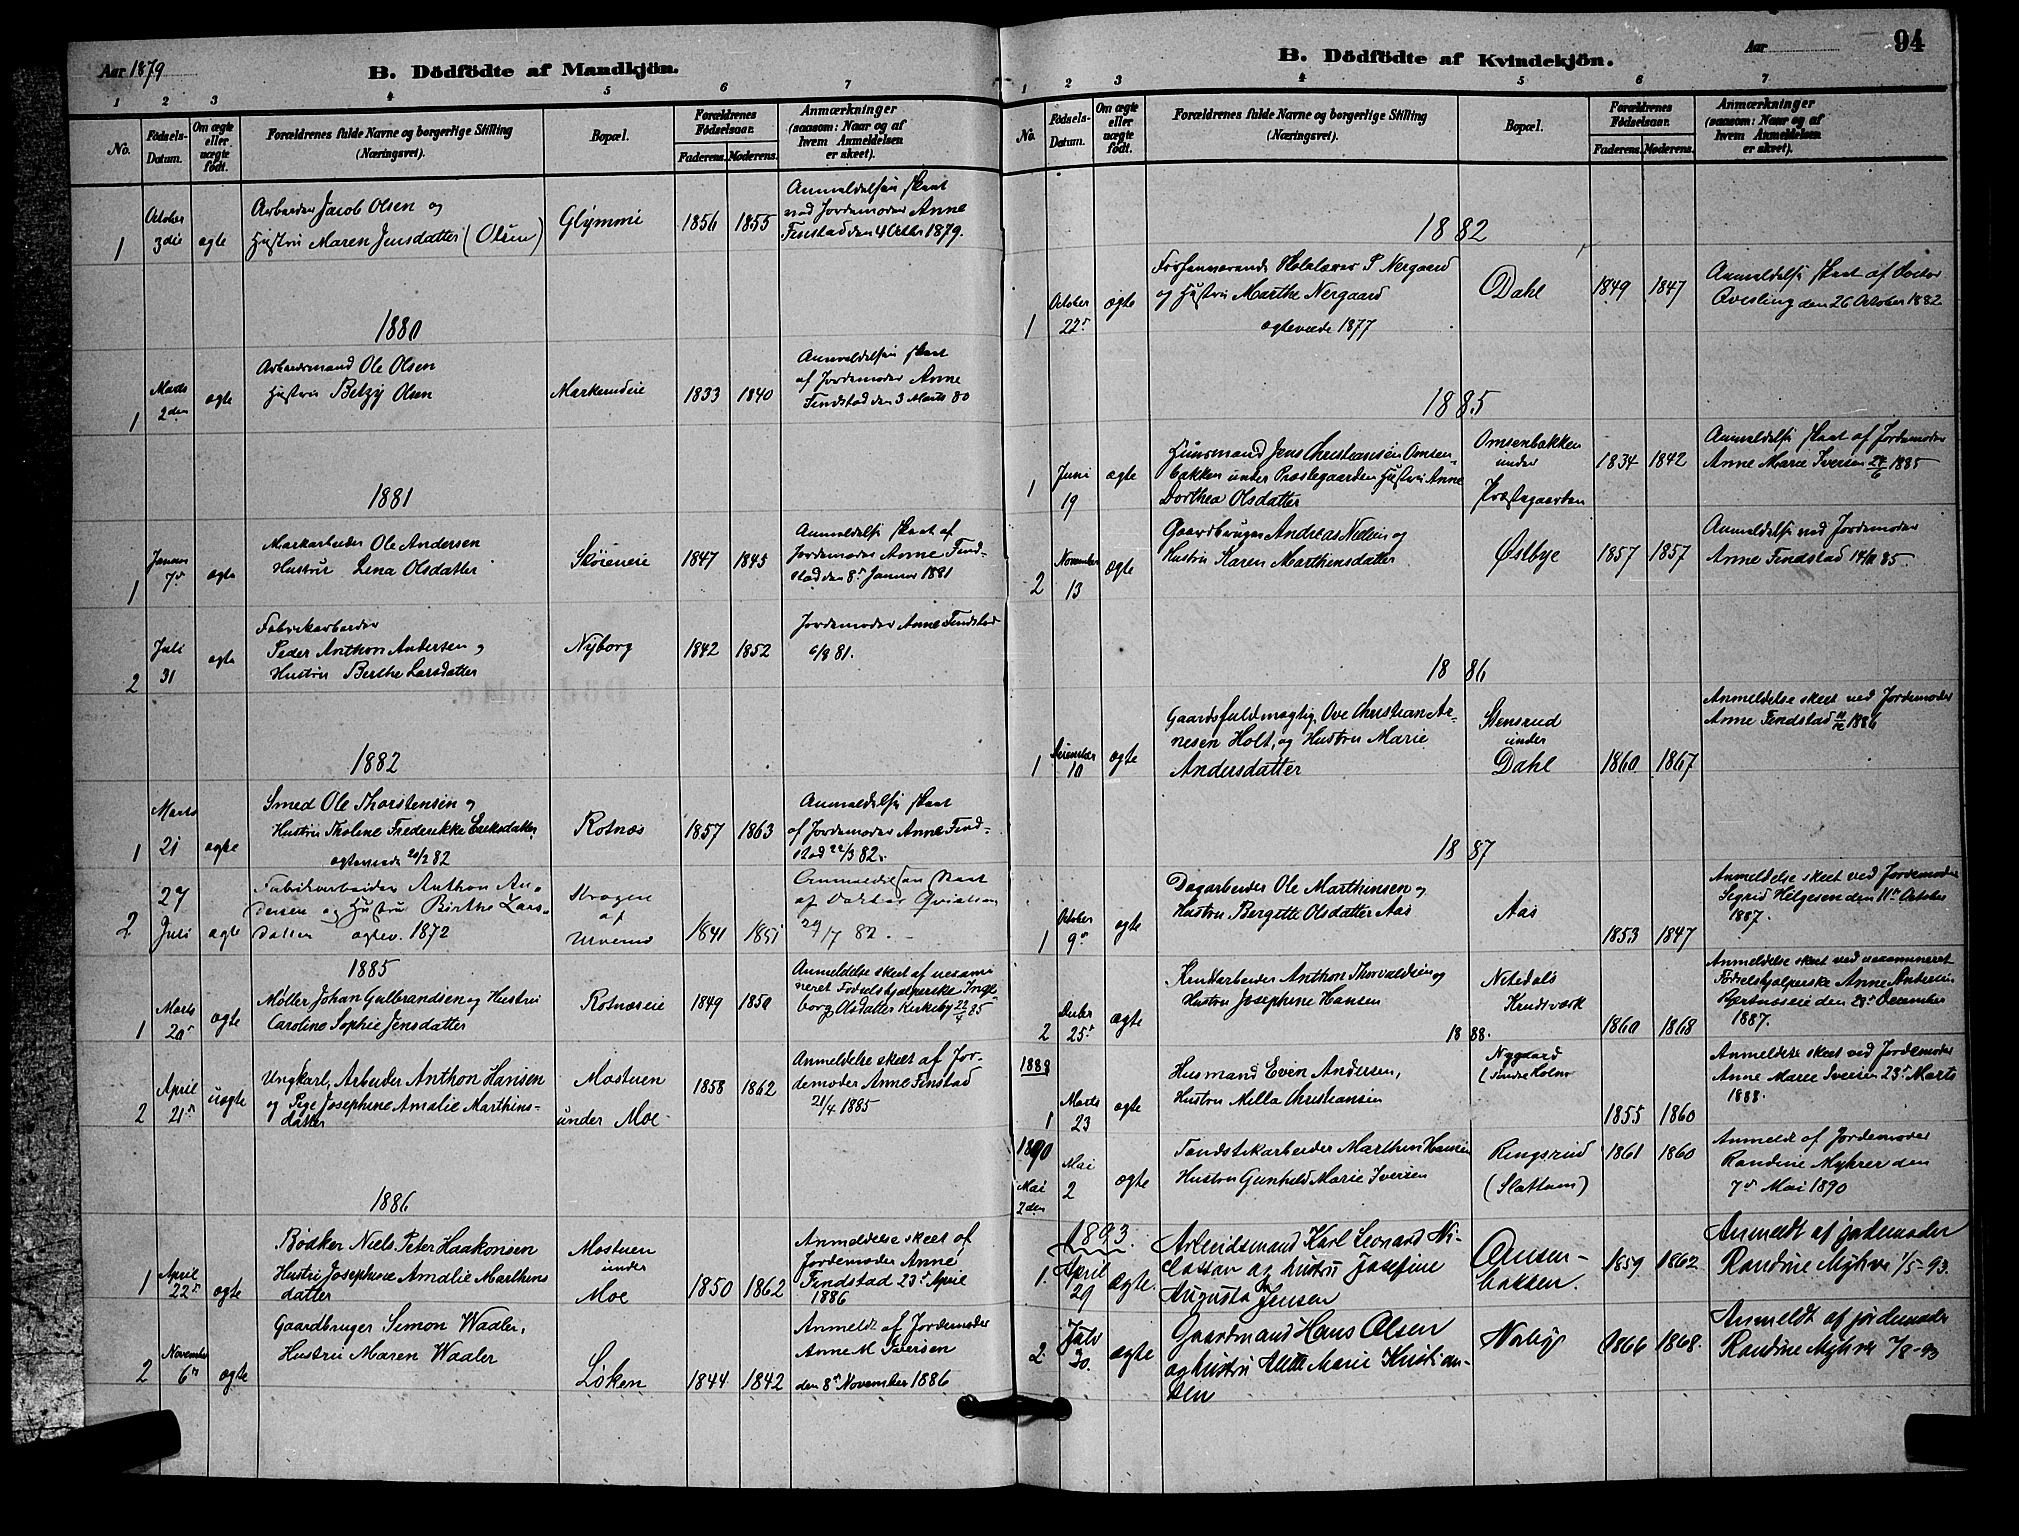 Aar 1879
B. Dödfödte af Mandkjön.
1 2 3 4 5 6 7
No.
Födsels-Datum.
Om ægte eller uægte født.
Forældrenes fulde Navne og borgerlige Stilling
(Næringsvei).
Bopæl.
Forældrenes Födselsaar.
Faderens. Moderens.
Anmærkninger
(saasom: Naar og af
hvem Anmeldelsen
er skeet).
1 October 3die ægte
Arbeider Jacob Olsen og
Hustru Maren Jensdatter (Olsen)
Glymmi 1856 1855
Anmeldelsen skeet
ved Jordemoder Anne
Finstad den 4 Octbr 1879.
1880
1 Marts 2den ægte
Arbeidsmand Ole Olsen
Hustru Betzy Olsen
Markerudeie 1833 1840
Anmeldelsen skeet
af Jordemoder Anne
Findstad den 3 Marts 80
1881
1 Januar 7de ægte
Markarbeider Ole Andersen
Hustru Lina Olsdatter
Skøieneie 1847 1845
Anmeldelse skeet af
Jordemoder Anne Find-
stad den 8de Januar 1881
2 Juli 31 ægte
Fabrikarbeider
Peder Anthon Andersen og
Hustru Berthe Larsdatter
Nyborg 1842 1852
Jordemoder Anne Findstad
6/8 81.
1882
1 Marts 21 ægte
Smed Ole Thorstensen og
Hustru Tholine Frederikke Eriksdatter
ægteviede 20/2 82
Rotnæs 1857 1863
Anmeldelse skeet
af Jordemoder Anne Find-
stad 22/3 82.
2 29 Juli ægte
Fabrikarbeider Anthon An-
dersen og Hustru Birthe Lars-
datter ægtev. 1872
Kragen
af
1841 1851
Anmeldelsen skeet
af Doktor
29/7 82.
1885
1 Marts 20de ægte
Møller Johan Gulbrandsen og Hustru
Caroline Sophie Jensdatter
Rotnæseie 1849 1850
Anmeldelse skeet af uexami-
neret Fødselshjælperske Inge-
borg Olsdatter Kirkeby 22/4 85
2 April 21de uægte
Ungkarl, Arbeider Anthon Hansen
og Pige Josephine Amalie Marthins-
datter
Mostuen
under Moe
1858 1862
Anmeldelse skeet af Jor-
demoder Anne Finstad
21/4 1885
1886
1 April 22de ægte
Bødker Niels Peter Haakonsen
Hustru Josephine Amalie Marthins
datter
Mostuen
under
Moe
1850 1862
Anmeldelse skeet af
Jordemoder Anne
Findstad 23de April
1886
2 November 6te ægte
Gaardbruger Simon Waaler,
Hustru Maren Waaler
Løken 1844 1842
Anmeldt af Jordemoder
Anne M Iversen
den 8de November 1886
94
Aar
B. Dödfödte af Kvindekjön.
1 2 3 4 5 6 7
No.
Födsels-Datum.
Om ægte eller uægte födt.
Forældrenes fulde Navne og borgerlige Stilling
(Næringsvei).
Bopæl.
Forældrenes Födselsaar.
Faderens. Moderens.
Anmærkninger
(saasom: Naar og af
hvem Anmeldelsen
er skeet).
1882
1 October 22de ægte
Forhenværende Skolelærer P. Nergaard
og Hustru Marthe Nergaard
ægteviede 1877
Dahl 1849 1847
Anmeldelse skeet af Doctor
Qvisling den 26 October 1882
1885
1 Juni 19 ægte
Huusmand Jens Christiansen Omsen-
bakken under Præstegaarden Hustru Anne
Dorthea Olsdatter
Omsenbakken
under
Præstegaarden
1834 1842
Anmeldelse skeet af Jordemoder
Anne Marie Iversen 24/6 1885
2 November 13 ægte
Gaardbruger Andreas Nielsen og
Hustru Karen Marthinsdatter
Østbye 1857 1857
Anmeldelse ved Jordemoder
Anne Findstad 14/11 85.
1886
1 December 10 ægte
Gaardsfuldmægtig, Ove Christian Ar-
nesen Holt, og Hustru Marie
Andersdatter
Stensrud
under
Dahl
1860 1867
Anmeldelse skeet ved Jordemoder
Anne Findstad 11/12 1886
1887
1 October 9de ægte
Dagarbeider Ole Marthinsen og
Hustru Bergitte Olsdatter Aas
Aas 1853 1847
Anmeldelse skeet ved Jordemoder
Sigrid Helgesen den 11te October
1887.
2 Decbr 25de ægte
Krudtarbeider Anthon Thorvaldsen og
Hustru Josephine Hansen
Nitedals
Krudtværk
1860 1868
Anmeldelse skeet ved uexamineret
Fødselshjælperske Anne Andersen
den 28de December
1887.
1888.
1888
1 Marts 23 ægte
Husmand Even Andersen,
Hustru Milla Christiansen
Nygaard
(Søndre Holm
1855 1860
Anmeldelse skeet ved Jordemoder
Anne Marie Iversen 23de Marts
1888.
1890
Mai 2den
Mai 2 ægte
Tændstikarbeider Marthin Hansen
Hustru Gunhild Marie Iversen
Ringsrud
(Slattum)
1861 1860
Anmeldt af Jordemoder
Randine Myhrer den
7de Mai 1890
1893.
1. April 29 ægte.
Arbeidsmand Karl Leonard Ni-
laسان og hustru Josefine
Augusta Jensen
Omsen-
bakken.
1859 1862
Anmeldt af jordemoder
Randine Myhre 1/5-93.
2. Juli 30. ægte
Gaardmand Hans Olsen
og hustru Marie Kristian-
sen
Naby 1866 1868.
Anmeldt af jordemoder
Randine Myhre 7/8-93